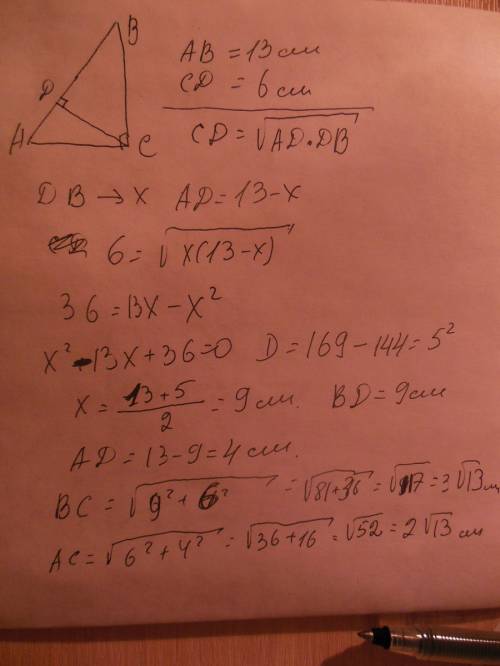 B
AB = 13 см
D
CD = 6 см
A
C
CD = √AD·DB
DB → x AD = 13 - x
6 = √x(13 - x)
36 = 13x - x²
x² - 13x + 36 = 0 D = 169 - 144 = 5²
x = (13 + 5)/2 = 9 см. BD = 9 см
AD = 13 - 9 = 4 см.
BC = √9² + 6² = √81 + 36 = √117 = 3√13 см
AC = √6² + 4² = √36 + 16 = √52 = 2√13 см